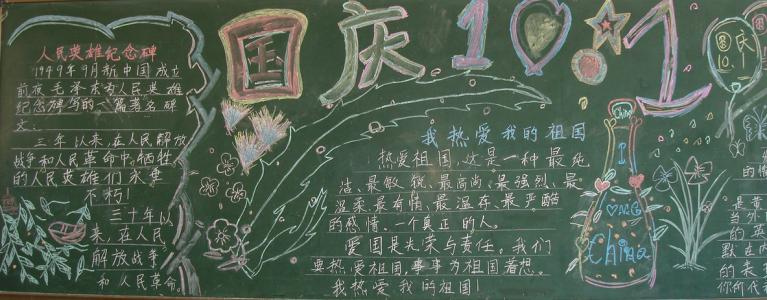 人民英雄纪念碑
1949年9月新中国成立
前夜毛泽东为人民英雄
纪念碑写的一篇著名碑
文:
三年以来,在人民解放
战争和人民革命中牺牲
的人民英雄们永垂
不朽!
三十年以
来,在人民
解放战争
和人民革命
国庆10.1
我热爱我的祖国
热爱祖国,这是一种最纯
洁、最敏锐、最高尚、最强烈、最
温柔、最有情、最温存、最严酷
的感情。一个真正的人。
爱国是光荣与责任。我们
要热爱祖国,事事为祖国着想。
我热爱我的祖国!
China
I
China
国庆
10.1
的
是黄
当外
的英
默在
的表
你何代